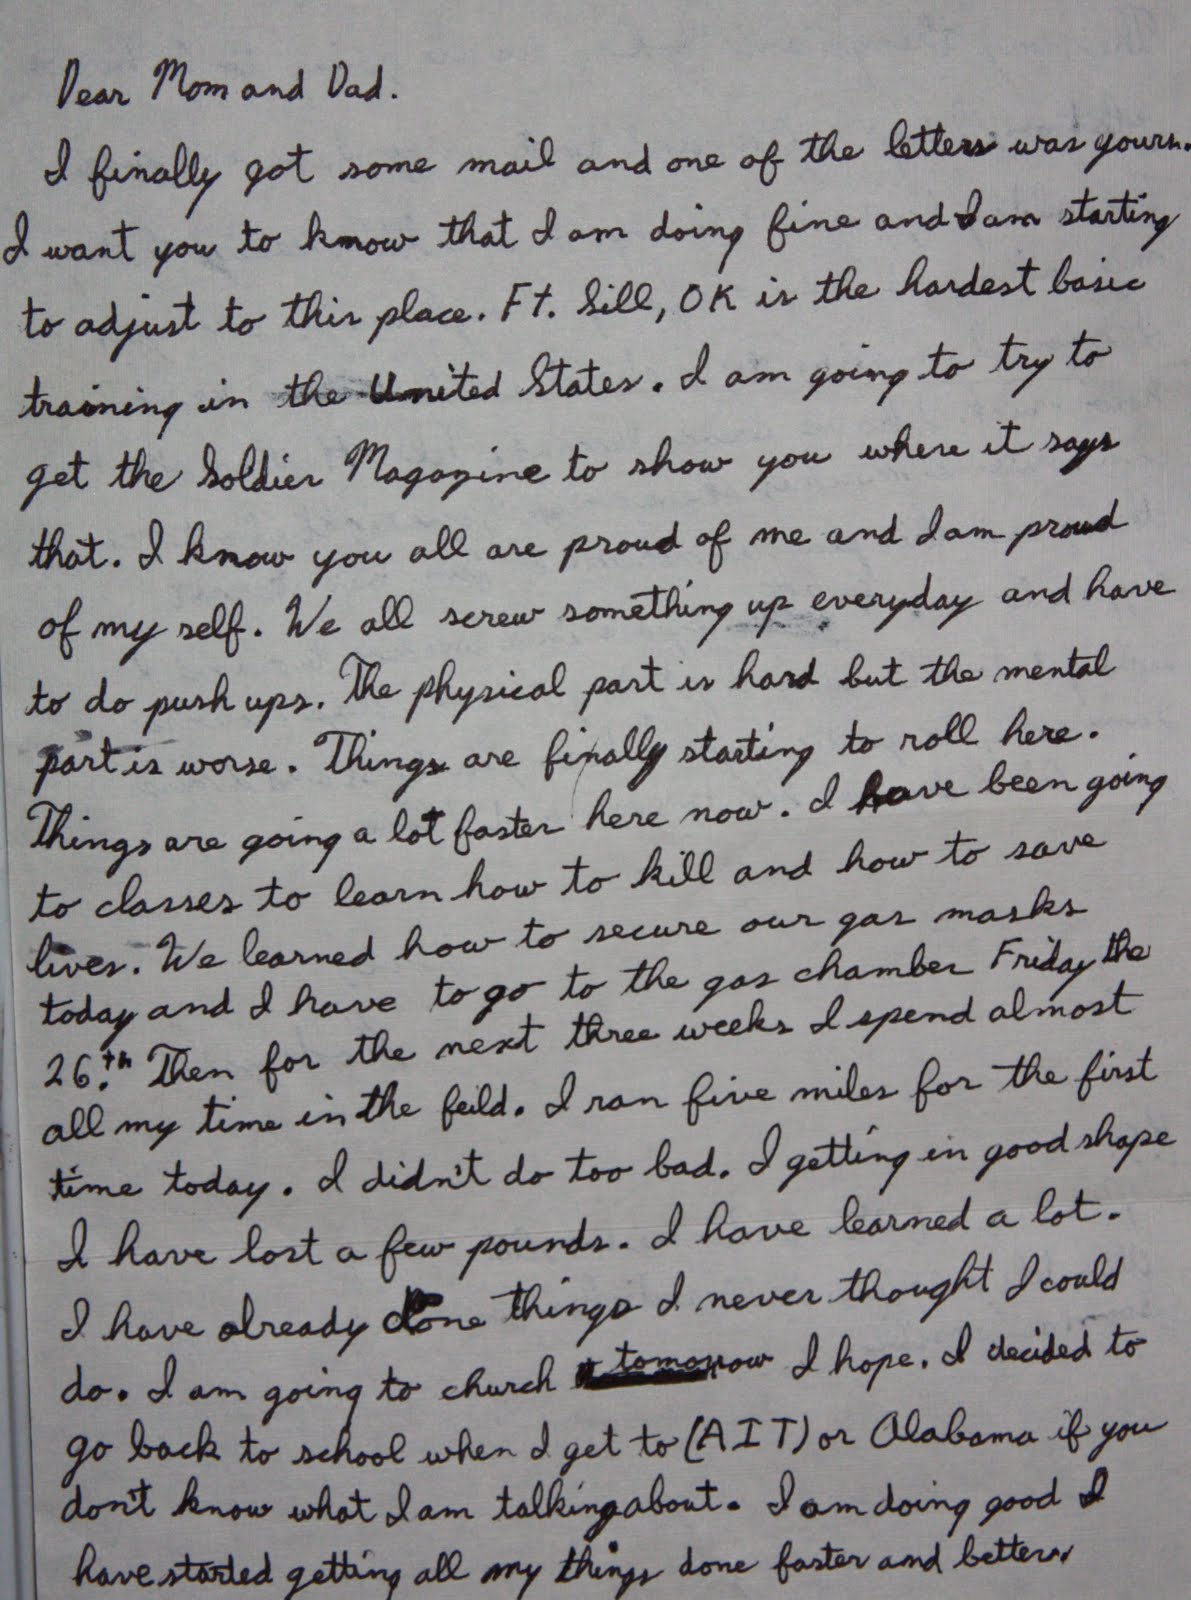 Dear Mom and Dad.
I finally got some mail and one of the letters was yours.
I want you to know that I am doing fine and I am starting
to adjust to this place. Ft. Sill, OK is the hardest basic
training in the United States. I am going to try to
get the Soldier Magazine to show you where it says
that. I know you all are proud of me and I am proud
of my self. We all screw something up everyday and have
to do push ups. The physical part is hard but the mental
part is worse. Things are finally starting to roll here.
Things are going a lot faster here now. I have been going
to classes to learn how to kill and how to save
lives. We learned how to secure our gas masks
today and I have to go to the gas chamber Friday the
26th. Then for the next three weeks I spend almost
all my time in the feild. I ran five miles for the first
time today. I didn't do too bad. I getting in good shape
I have lost a few pounds. I have learned a lot.
I have already done things I never thought I could
do. I am going to church tomorrow I hope. I decided to
go back to school when I get to (AIT) or Alabama if you
don't know what I am talking about. I am doing good I
have started getting all my things done faster and better.